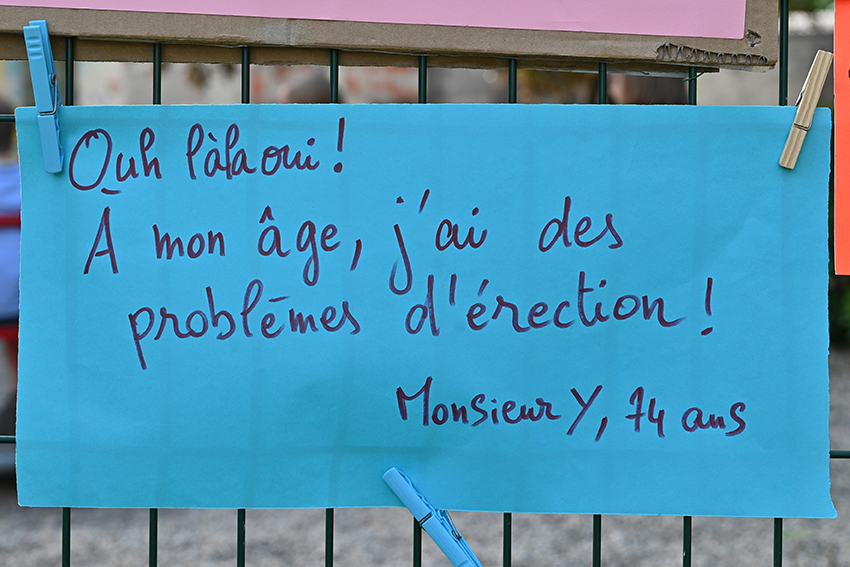 Ouh làlà oui !
À mon âge, j'ai des
problèmes d'érection !
Monsieur Y, 74 ans